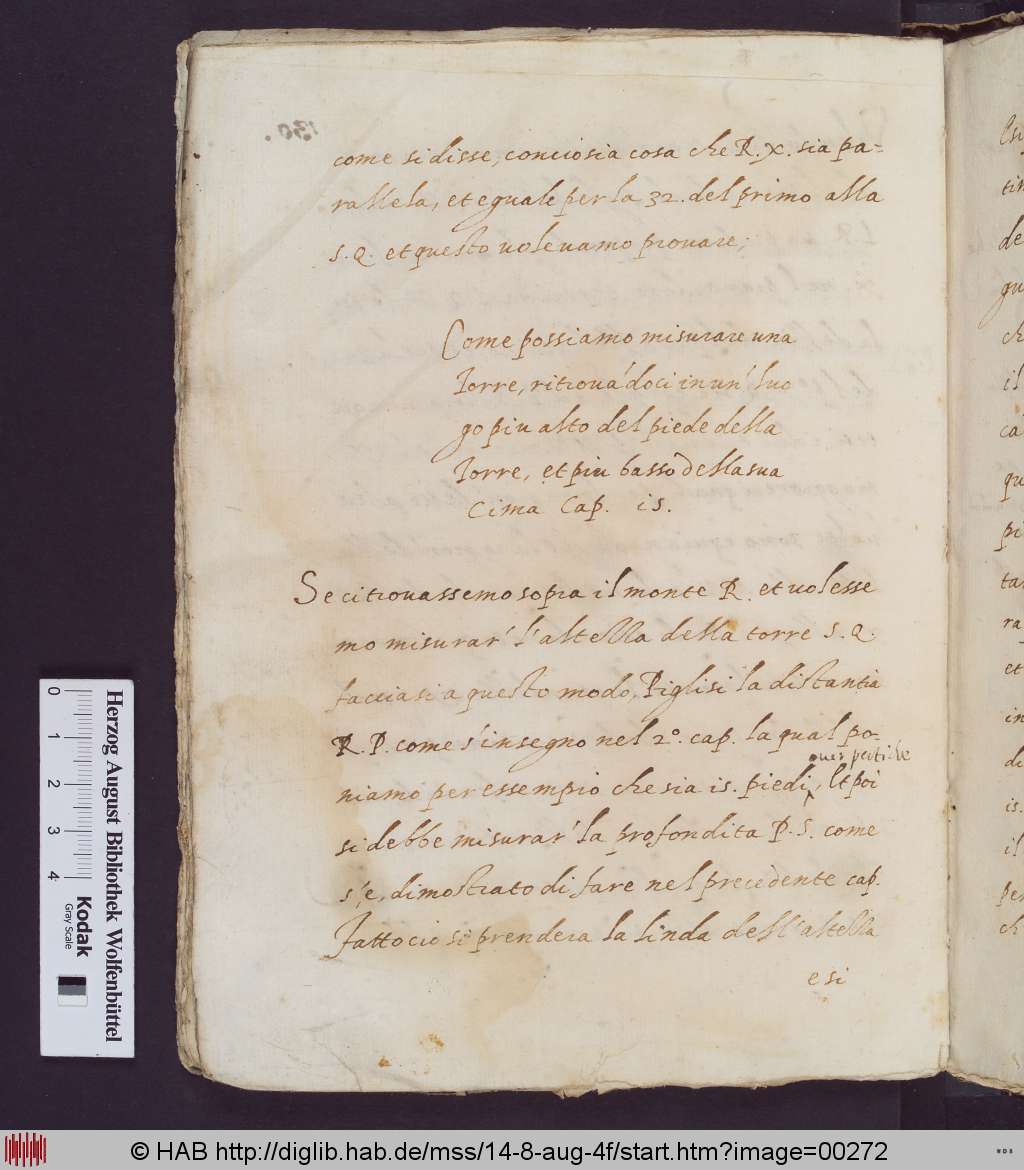 130.
come si disse, conciosia cosa che R. X. sia pa-
rallela, et eguale per la 32. del primo alla
S. Q. et questo volevamo provare;
Come possiamo misurare una
Torre, ritrova'doci in un' luo
go piu alto del piede della
Torre, et piu basso della sua
Cima Cap. is.
Se ci trovassemo sopra il monte R. et volesse
mo misurar' l'altella della torre S. Q.
facciasi a questo modo, Piglisi la distantia
R. P. come s'insegno nel 2º. cap. la qual po-
over pertiche
niamo per essempio che sia is. piedi, Et poi
si debbe misurar' la profondita P. S. come
s'e, dimostrato di fare nel precedente cap.
Fatto cio si prendera la linda dell'altella
e si
Herzog August Bibliothek Wolfenbüttel
0 1 2 3 4
Kodak
Gray Scale
© HAB http://diglib.hab.de/mss/14-8-aug-4f/start.htm?image=00272